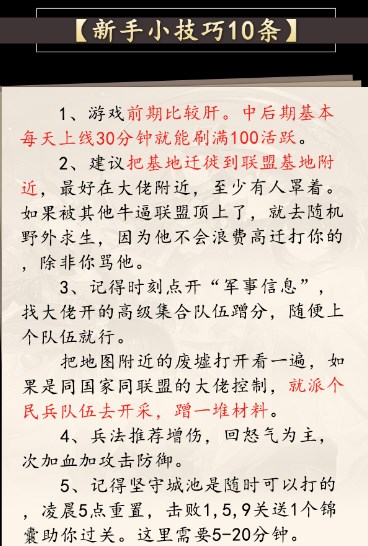 【新手小技巧10条】
1、游戏前期比较肝。中后期基本
每天上线30分钟就能刷满100活跃。
2、建议把基地迁徙到联盟基地附
近，最好在大佬附近，至少有人罩着。
如果被其他牛逼联盟顶上了，就去随机
野外求生，因为他不会浪费高迁打你的
，除非你骂他。
3、记得时刻点开“军事信息”，
找大佬开的高级集合队伍蹭分，随便上
个队伍就行。
把地图附近的废墟打开看一遍，如
果是同国家同联盟的大佬控制，就派个
民兵队伍去开采，蹭一堆材料。
4、兵法推荐增伤，回怒气为主，
次加血加攻击防御。
5、记得坚守城池是随时可以打的
，凌晨5点重置，击败1,5,9关送1个锦
囊助你过关。这里需要5-20分钟。